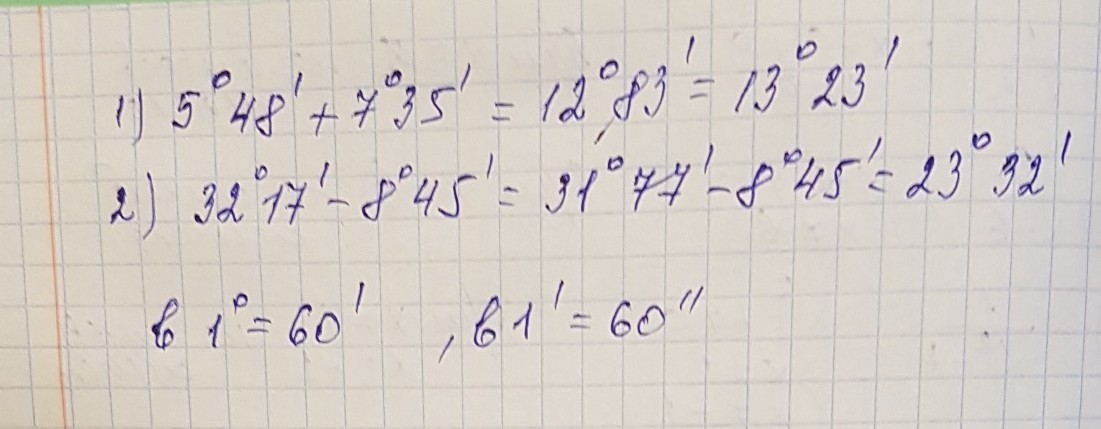 1) 5°48' + 7°35' = 12°83' = 13°23'
2) 32°17' - 8°45' = 31°77' - 8°45' = 23°32'
в 1° = 60' , в 1' = 60"